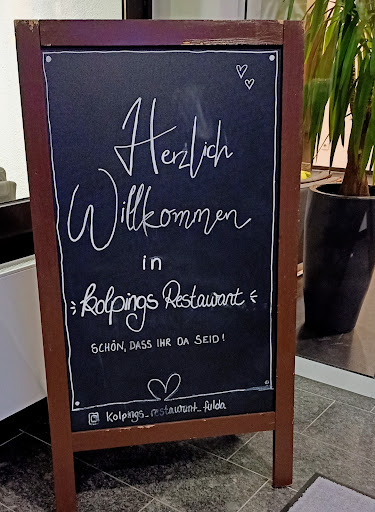 Herzlich
Willkommen
in
Kolpings Restaurant
SCHÖN, DASS IHR DA SEID!
kolpings_restaurant_fulda